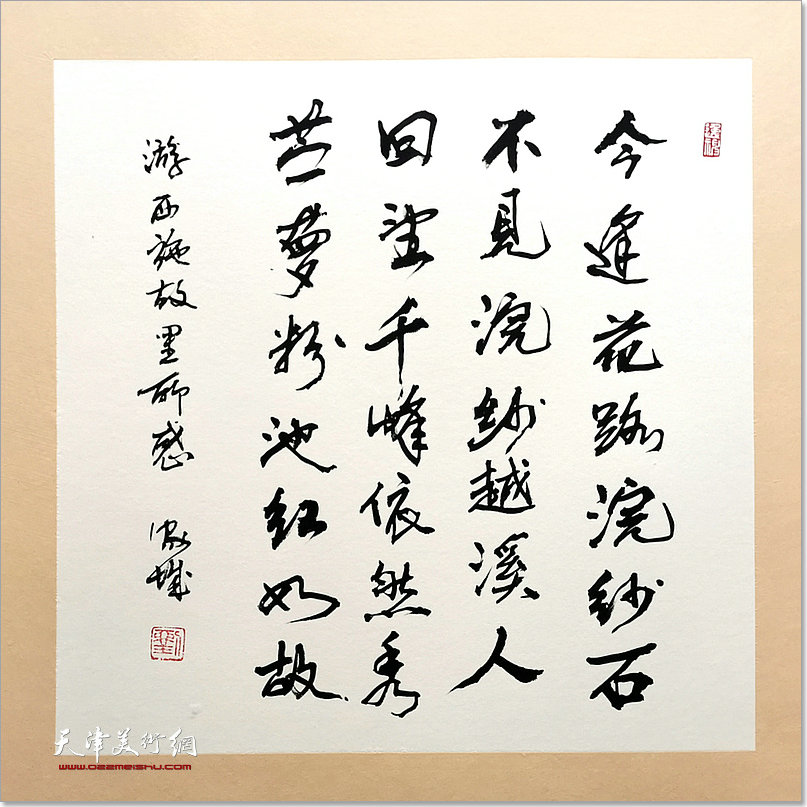 今逢花路浣紗石
不見浣紗越溪人
回望千峰依然秀
夢粉池紅如故
游西施故里聊感
城
天津美術網
www.022meishu.com